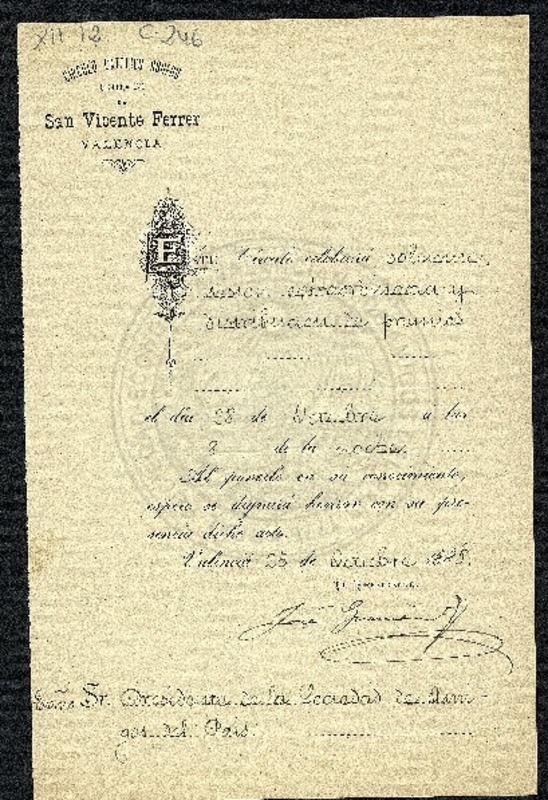 XII 12 C-246
San Vicente Ferrer
VALENCIA
Este Círculo celebrará solemne
sesión extraordinaria y
distribución de premios
el día 28 de Octubre a las
8 de la noche
Al ponerlo en su conocimiento,
espera se dignará honrar con su pre-
sencia dicho acto.
Valencia 25 de Octubre
El Presidente
José
Excmo Sr. Presidente de la Sociedad de Ami-
gos del Pais.